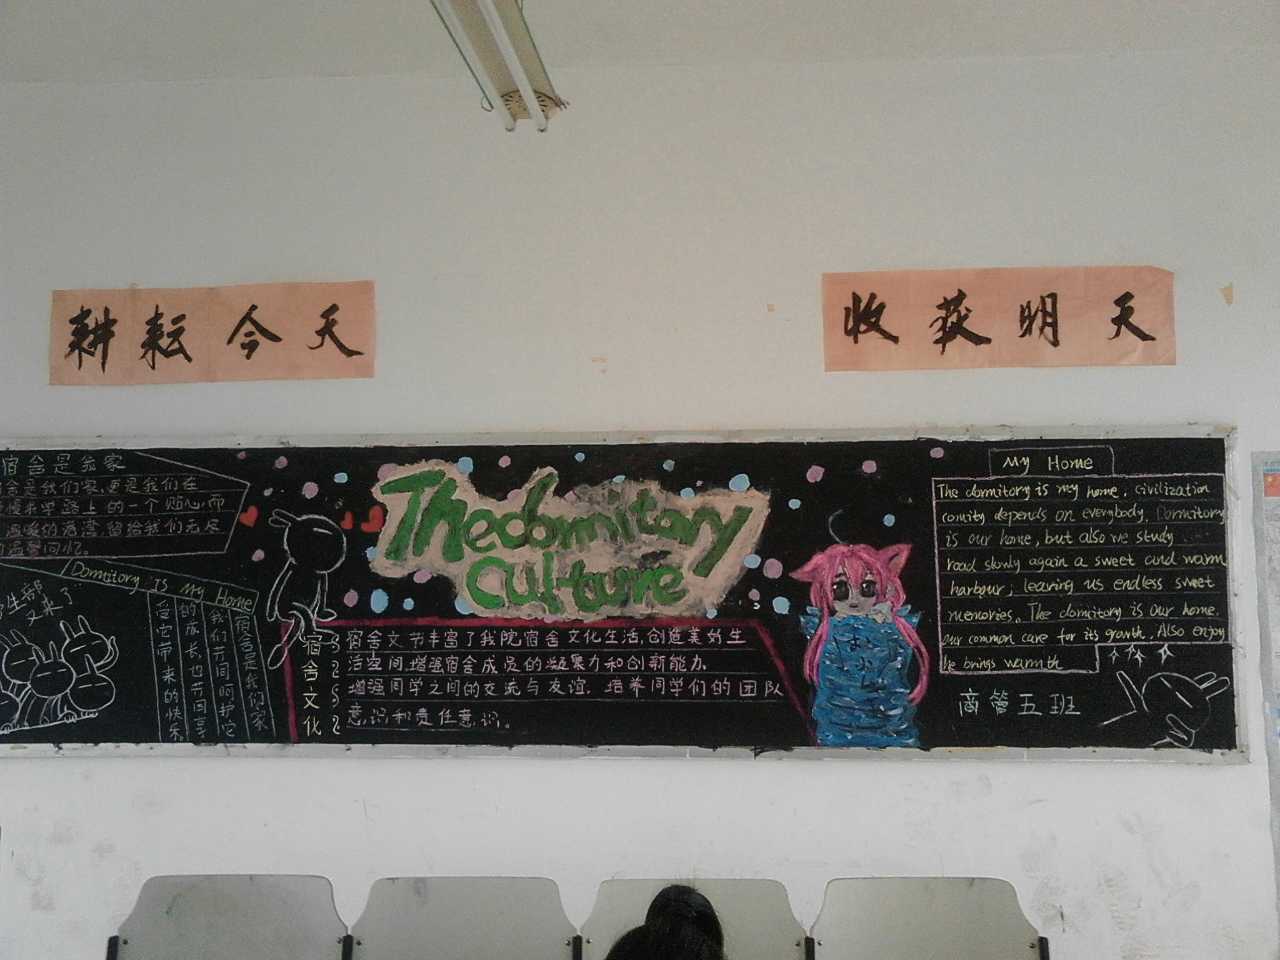 耕耘今天
收获明天
宿舍是我家
舍是我们家,更是我们在
路上的一个贴心,而
温暖的港湾,留给我们无尽
温馨回忆。
Dormitory Is My Home
又来了
宿舍是我们家
我们共同呵护它
的成长,也共同享
受它带来的快乐
The dormitory
Culture
宿舍文化
宿舍文书丰富了我院宿舍文化生活,创造美好生
活空间,增强宿舍成员的凝聚力和创新能力.
增强同学之间的交流与友谊. 培养同学们的团队
意识和责任意识。
My Home
The dormitory is my home, civilization
comity depends on everybody, Dormitory
is our home, but also we study
road slowly again a sweet and warm
harbour, leaving us endless sweet
memories. The dormitory is our home,
our common care for its growth, Also enjoy
he brings warmth
商管五班